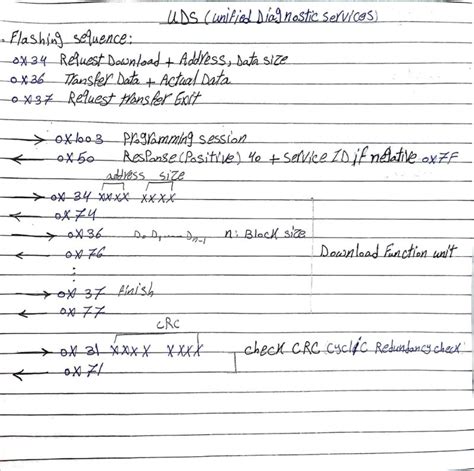 UDS (unified Diagnostic services)
Flashing sequence:
0X34 Request Download + Address, Data size
0X36 Transfer Data + Actual Data
0X37 Request transfer Exit
→ 0X1003 Programming session
← 0X50 Response (Positive) 40 + Service ID if negative 0x7F
address size
→ 0X 34 XXXX XXXX
← 0X74
→ 0X36 D0 D1 ...... Dn-1 n: Block size
← 0X76 Download Function unit
:
→ 0X 37 finish
← 0X 77
CRC
→ 0X 31 XXXX XXXX check CRC cyclic Redundancy check
← 0X71